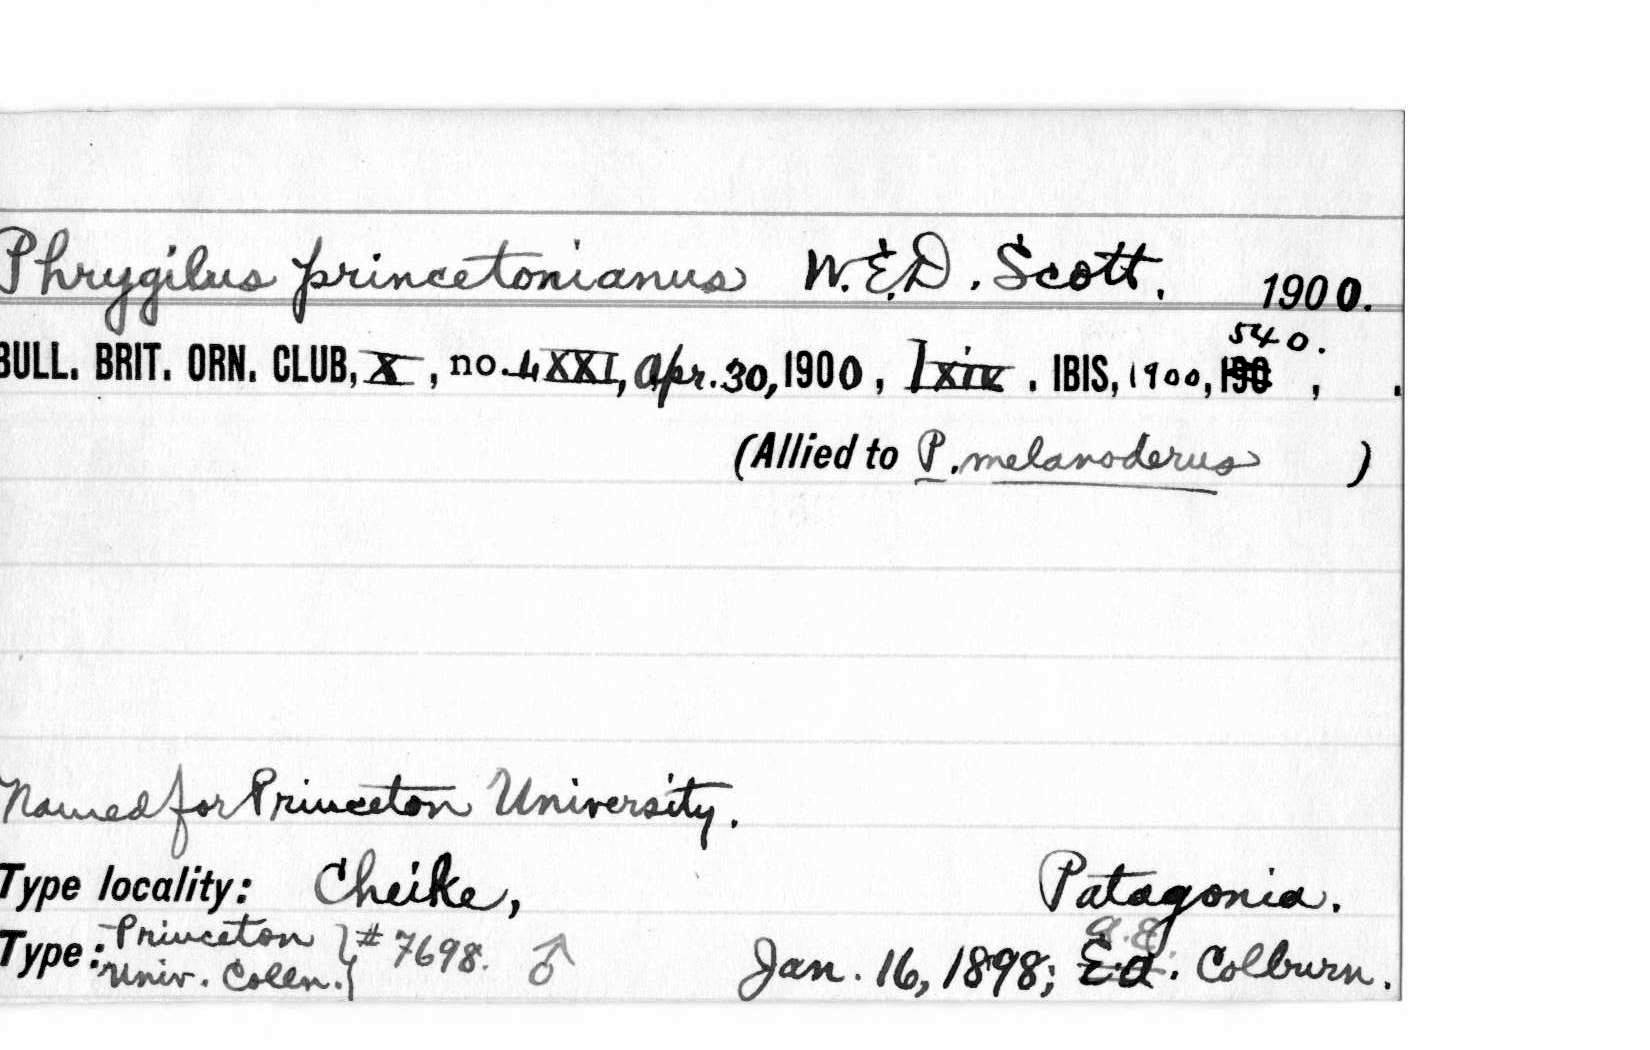 Phrygilus princetonianus W.E.D. Scott. 1900.
540.
BULL. BRIT. ORN. CLUB, X, no. LXXI, Apr. 30, 1900, lxiv. IBIS, 1900, 190, .
(Allied to P. melanoderus )
Named for Princeton University.
Type locality: Cheike, Patagonia.
Type: Princeton Univ. Colln. } # 7698. ♂ Jan. 16, 1898; E.A. Colburn.
A.E.